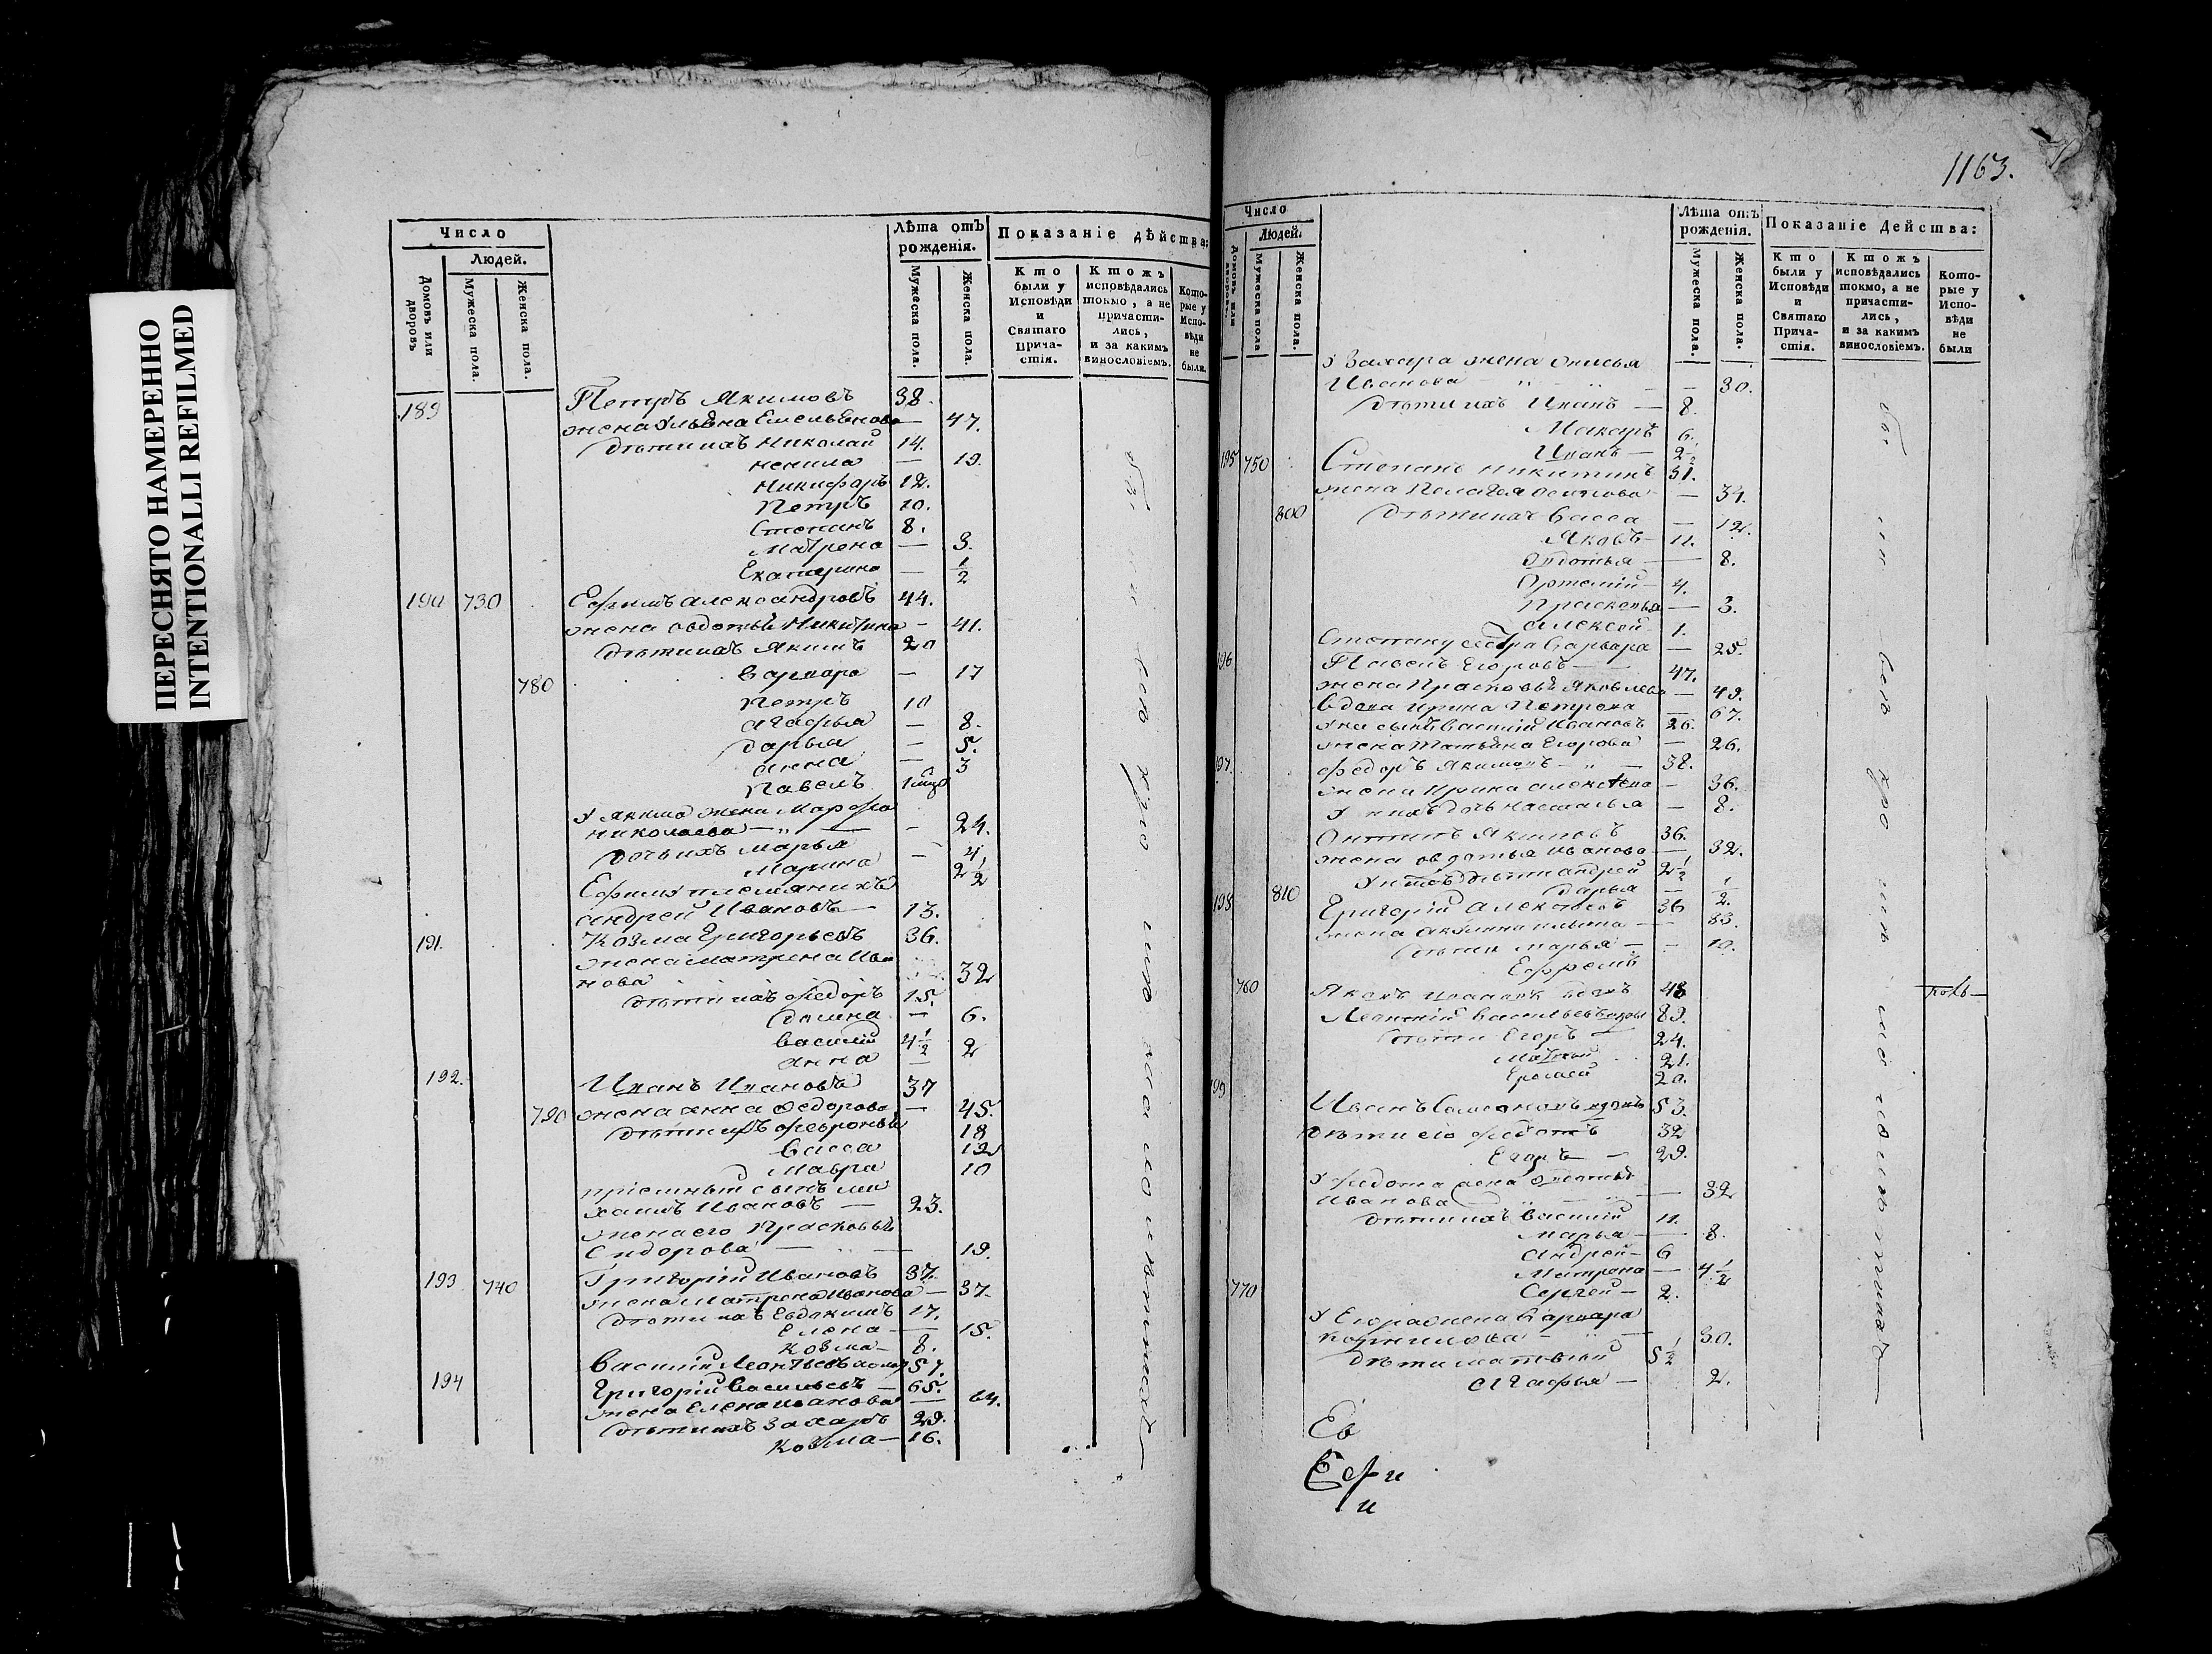 ПЕРЕСНЯТО НАМЕРЕННО
INTENTIONALLI REFILMED
Число
Людей.
Домовъ или дворовъ
Мужеска пола.
Женска пола.
Лѣта отъ рожденія.
Мужеска пола.
Женска пола.
Показаніе дѣйства:
Кто были у Исповѣди и Святаго Причастія.
Ктожъ исповѣдались токмо, а не причастились, и за какимъ винословіемъ.
Которые у Исповѣди не были.
189 Петръ Якимовъ 38.
жена Ульяна Емельянова — 47.
дѣти ихъ Николай 14.
Ненила — 19.
Никифоръ 12.
Петръ 10.
Степанъ 8.
Матрена — 3.
Екатерина — 1/2
190 730 Ефимъ Александровъ 44.
жена Овдотья Никитина — 41.
дѣти ихъ Якимъ 20
780 Варвара — 17
Петръ 10
Агафья — 8.
Дарья — 5.
Анна — 3
Павелъ
У Якима жена Марфа
Николаева — 24.
дочь ихъ Марья — 4
Марина 2 1/2
Ефиму племянникъ
Андрей Ивановъ — 13.
191. Козма Григорьевъ 36.
жена Матрена Ива
нова 32
дѣти ихъ Федоръ 15.
Домна — 6.
Василій 4 1/2
Анна — 2
192. Иванъ Ивановъ 37
790 жена Анна Федорова — 45.
дѣти ихъ Февронья 18
Васса 12
Мавра 10
пріемный сынъ Ми
хаилъ Ивановъ — 23.
жена его Прасковья
Сидорова — 19.
193 740 Григорій Ивановъ 37.
жена Матрена Иванова — 37.
дѣти ихъ Евдокимъ 17.
Елена — 15.
Козма — 8.
Василій Леонтьевъ 57.
194 Григорій Васильевъ — 65.
жена Елена Иванова — 64.
дѣти ихъ Захаръ 29.
Козма — 16.
1163.
Число
Людей.
Домовъ или дворовъ.
Мужеска пола
Женска пола.
Лѣта отъ рожденія.
Мужеска пола.
Женска пола.
Показаніе Дейсшва:
Кто были у Исповѣди и Святаго Причастія.
Ктожъ исповѣдались токмо, а не причастились, и за какимъ винословіемъ.
Которые у Исповѣди не были
У Захара жена
Иванова — 30.
дѣти ихъ Иванъ — 8.
Макаръ 6.
Иванъ — 2 1/2
195 750 Степанъ Никитинъ 31.
жена Пелагея Осипова — 34.
800 дѣти ихъ Васса — 12.
Яковъ — 11.
Овдотья — 8.
Артемій — 4.
Прасковья — 3.
Алексей 1.
Степану сестра Варвара — 25.
196 Павелъ Егоровъ — 47.
жена Прасковья Яковлева — 49.
вдова Ирина Петрова — 67.
у ней сынъ Василій Ивановъ 26.
жена Татьяна Егорова — 26.
197. Федоръ Якимовъ — 38.
жена Ирина Алексеева — 36.
у нихъ дочь Наталья — 8.
Антипъ Якимовъ 36.
жена Овдотья Иванова — 32.
дѣти Андрей 2 1/2
810 Дарья — 1/2
198 Григорій Алексеевъ 36
жена Акулина Ильина — 33.
дѣти Марья — 10.
Ефремъ
760 Яковъ Ивановъ вдовъ 48
Леонтій Васильевъ вдовъ 89.
дѣти Егоръ 24.
Матвей 21.
Ермолай 20.
199 Иванъ вдовъ 53.
дѣти его Федотъ 32
Егоръ — 29.
У Федота жена
Иванова — 32
дѣти ихъ Василій 11.
Марья — 8.
Андрей — 6
Матрена — 4 1/2
770 Сергей — 2.
У Егора жена Варвара
Корнилова — 30.
дѣти Матвей 5 1/2
Агафья — 2.
Ев
Ефи
и